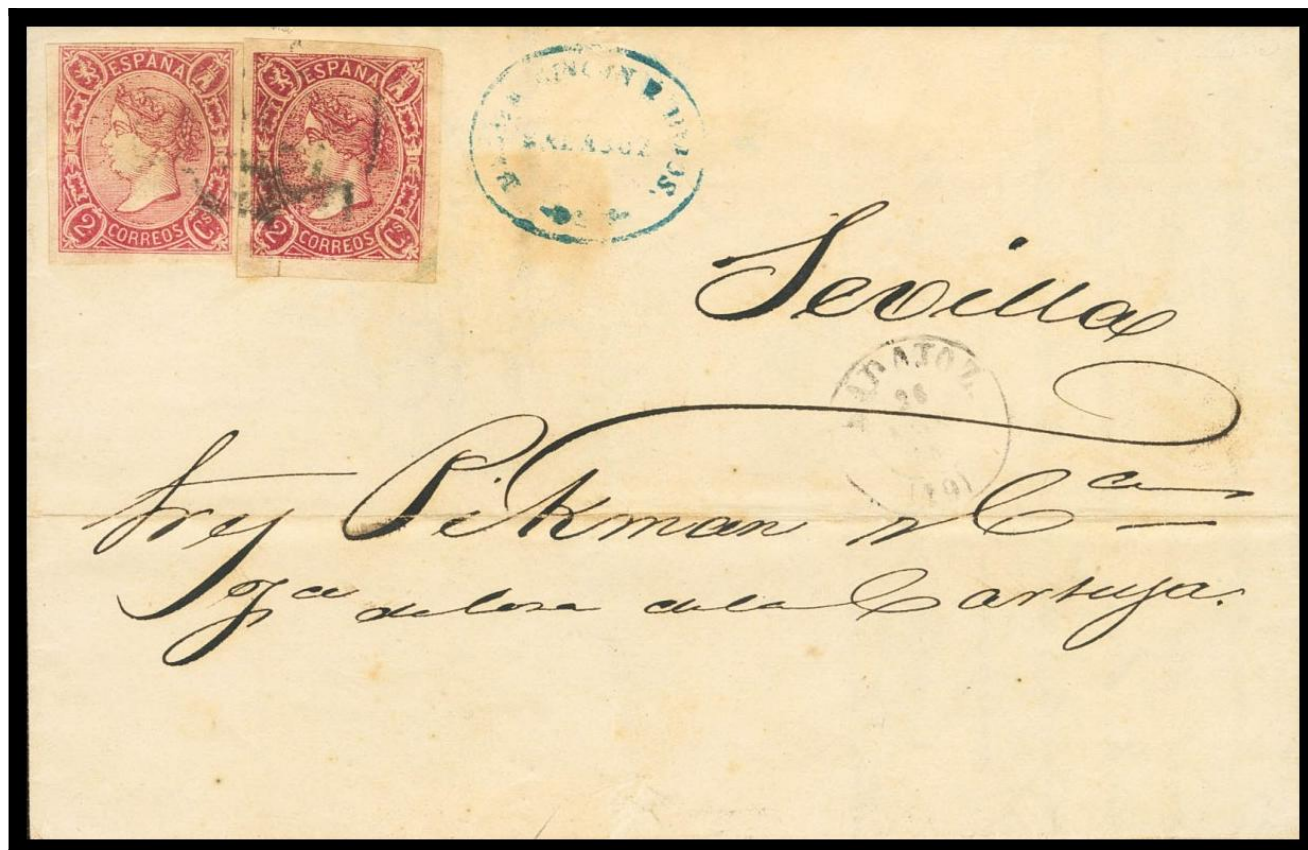 ESPAÑA
2 CORREOS Cs
ESPAÑA
2 CORREOS Cs
RINCON E HIJOS.
BADAJOZ
Sevilla
BADAJOZ
26
(10)
Pikman y Ca
de losa de la Cartuja.